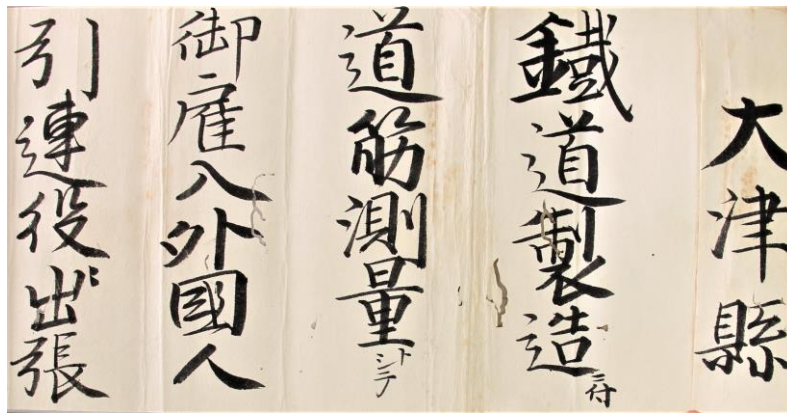 大津縣
鐵道製造ニ付
道筋測量トシテ
御雇入外國人
引連役〻出張